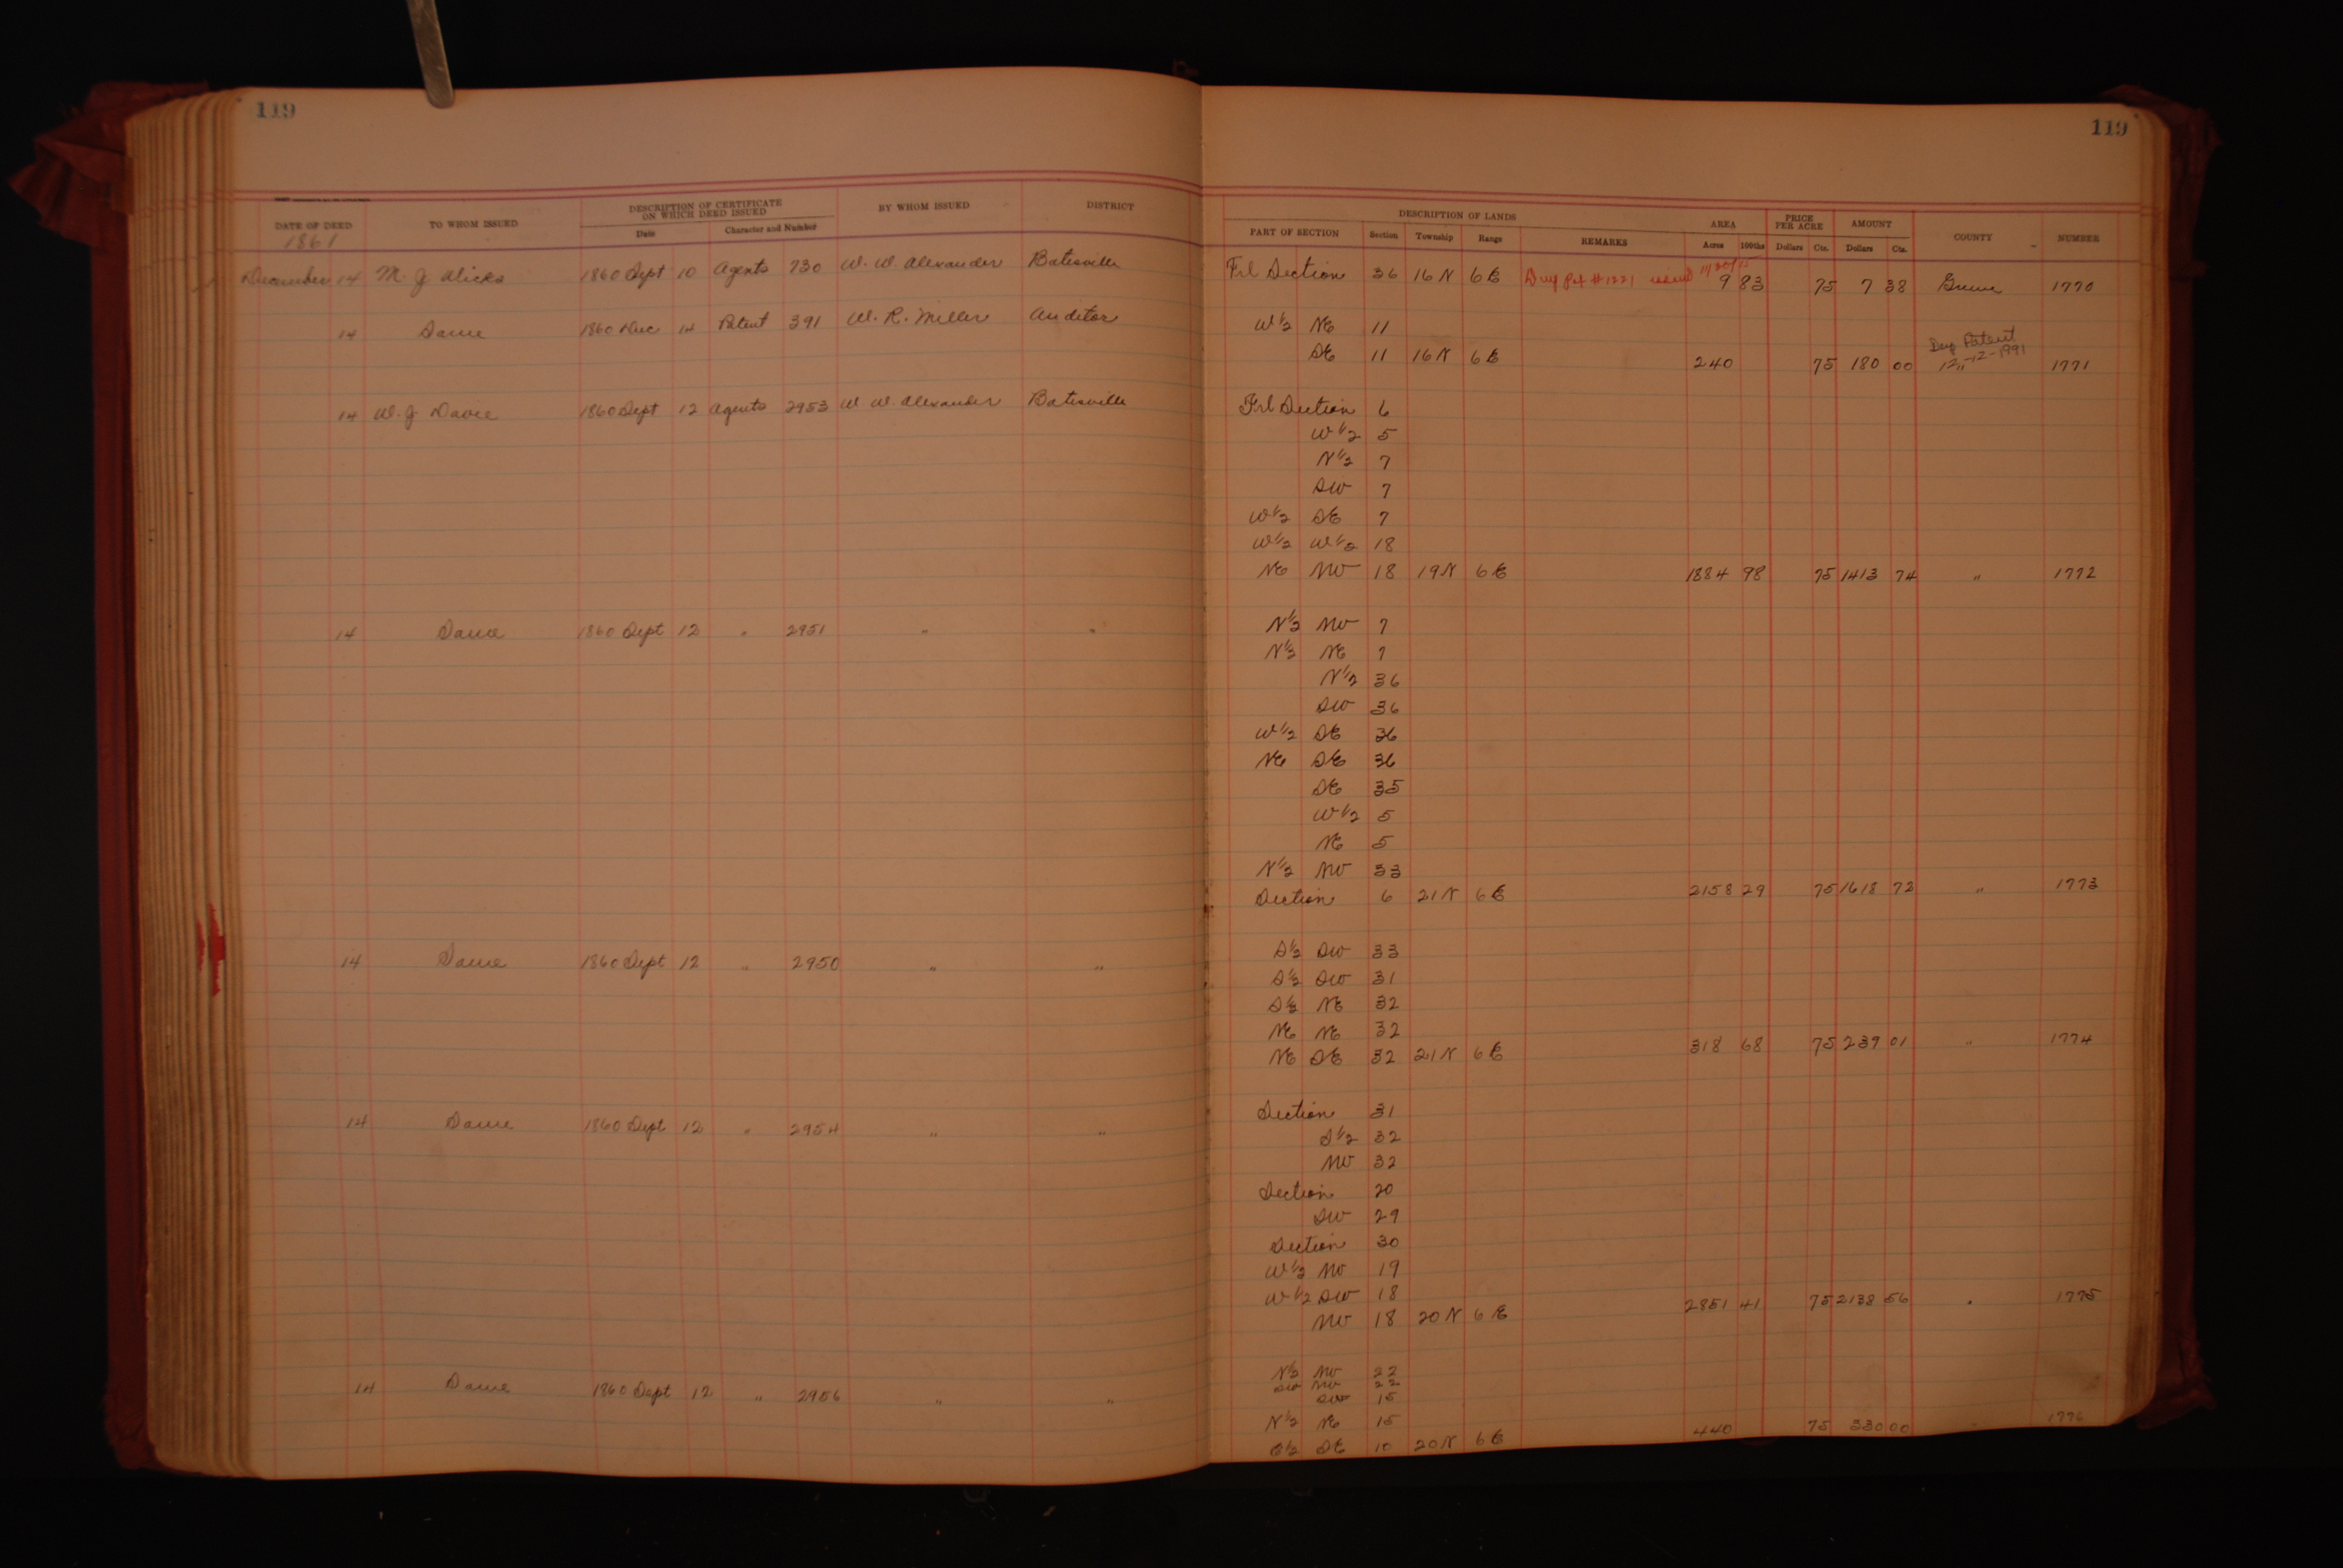 119 119
DATE OF DEED TO WHOM ISSUED DESCRIPTION OF CERTIFICATE ON WHICH DEED ISSUED BY WHOM ISSUED DISTRICT DESCRIPTION OF LANDS AREA PRICE PER ACRE AMOUNT COUNTY NUMBER
1861 Date Character and Number PART OF SECTION Section Township Range REMARKS Acres 100ths Dollars Cts. Dollars Cts.
December 14 M. J. 1860 Sept 10 Agents 730 W. W. Alexander Batesville Frl Section 36 16 N 6 E Dup Pat #1221 issued 9 83 75 7 38 Greene 1770
14 Same 1860 Dec 14 Patent 391 W. R. Miller Auditor W 1/2 NE 11
SE 11 16 N 6 E 240 75 180 00 Dup Patent 12-12-1991 " 1771
14 W. J. Davie 1860 Sept 12 Agents 2953 W W. Alexander Batesville Frl Section 6
W 1/2 5
N 1/2 7
SW 7
W 1/2 SE 7
W 1/2 W 1/2 18
NE NW 18 19 N 6 E 1884 98 75 1413 74 " 1772
14 Same 1860 Sept 12 " 2951 " " N 1/2 NW 7
N 1/2 NE 7
N 1/2 36
SW 36
W 1/2 SE 36
NE SE 36
SE 35
W 1/2 5
NE 5
N 1/2 NW 33
Section 6 21 N 6 E 2158 29 75 1618 72 " 1773
14 Same 1860 Sept 12 " 2950 " " S 1/2 SW 33
S 1/2 SW 31
S 1/2 NE 32
NE NE 32
NE SE 32 21 N 6 E 318 68 75 239 01 " 1774
14 Same 1860 Sept 12 " 2954 " " Section 31
S 1/2 32
NW 32
Section 20
SW 29
Section 30
W 1/2 NW 19
W 1/2 SW 18
NW 18 20 N 6 E 2851 41 75 2138 56 " 1775
14 Same 1860 Sept 12 " 2956 " " N 1/2 NW 22
SW NW 22
SW 15
N 1/2 NE 15
E 1/2 SE 10 20 N 6 E 440 75 330 00 " 1776